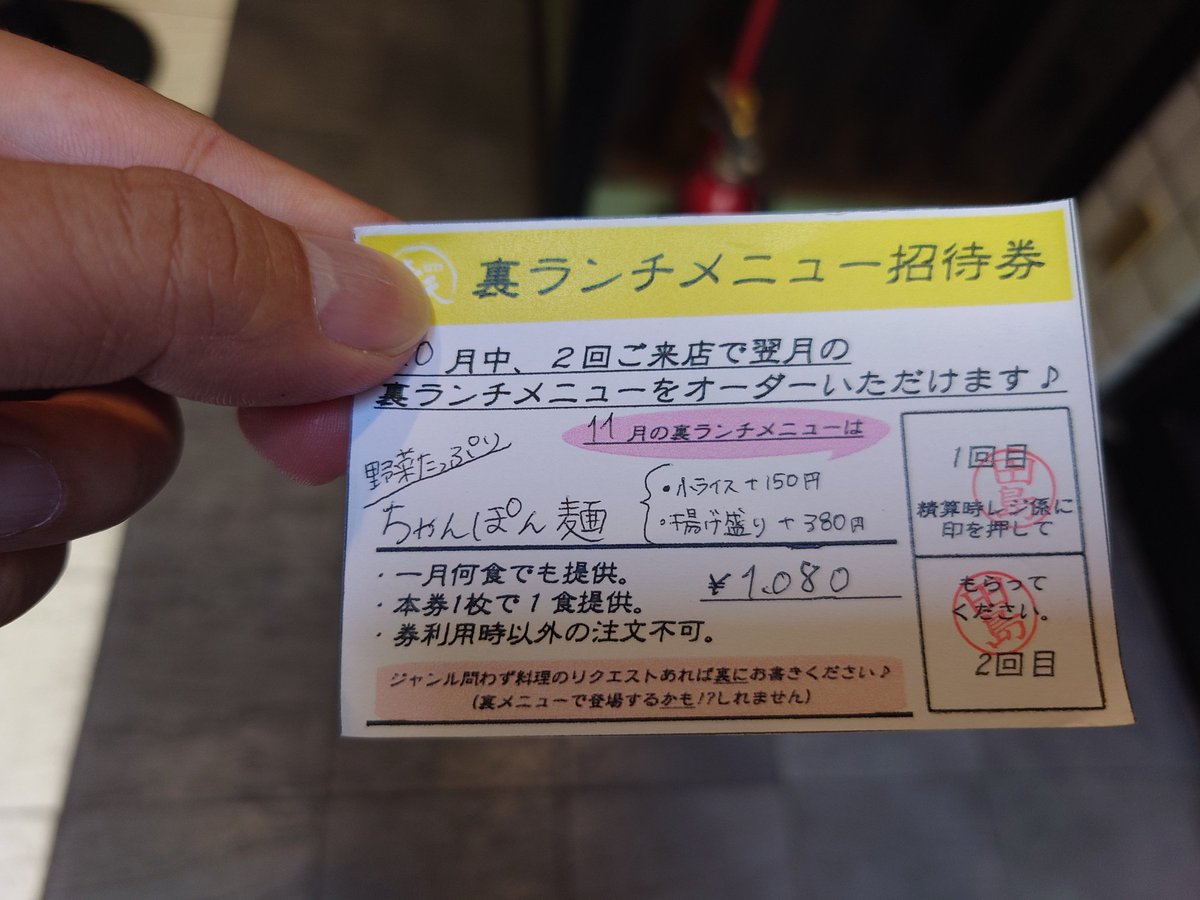 裏ランチメニュー招待券
0月中、2回ご来店で翌月の
裏ランチメニューをオーダーいただけます♪
11月の裏ランチメニューは
野菜たっぷり
ちゃんぽん麺
・小ライス+150円
・揚げ盛り+380円
¥1.080
・一月何食でも提供。
・本券1枚で1食提供。
・券利用時以外の注文不可。
ジャンル問わず料理のリクエストあれば裏にお書きください♪
(裏メニューで登場するかも!?しれません)
1回目
田島
積算時レジ係に
印を押して
もらって
ください。
田島
2回目